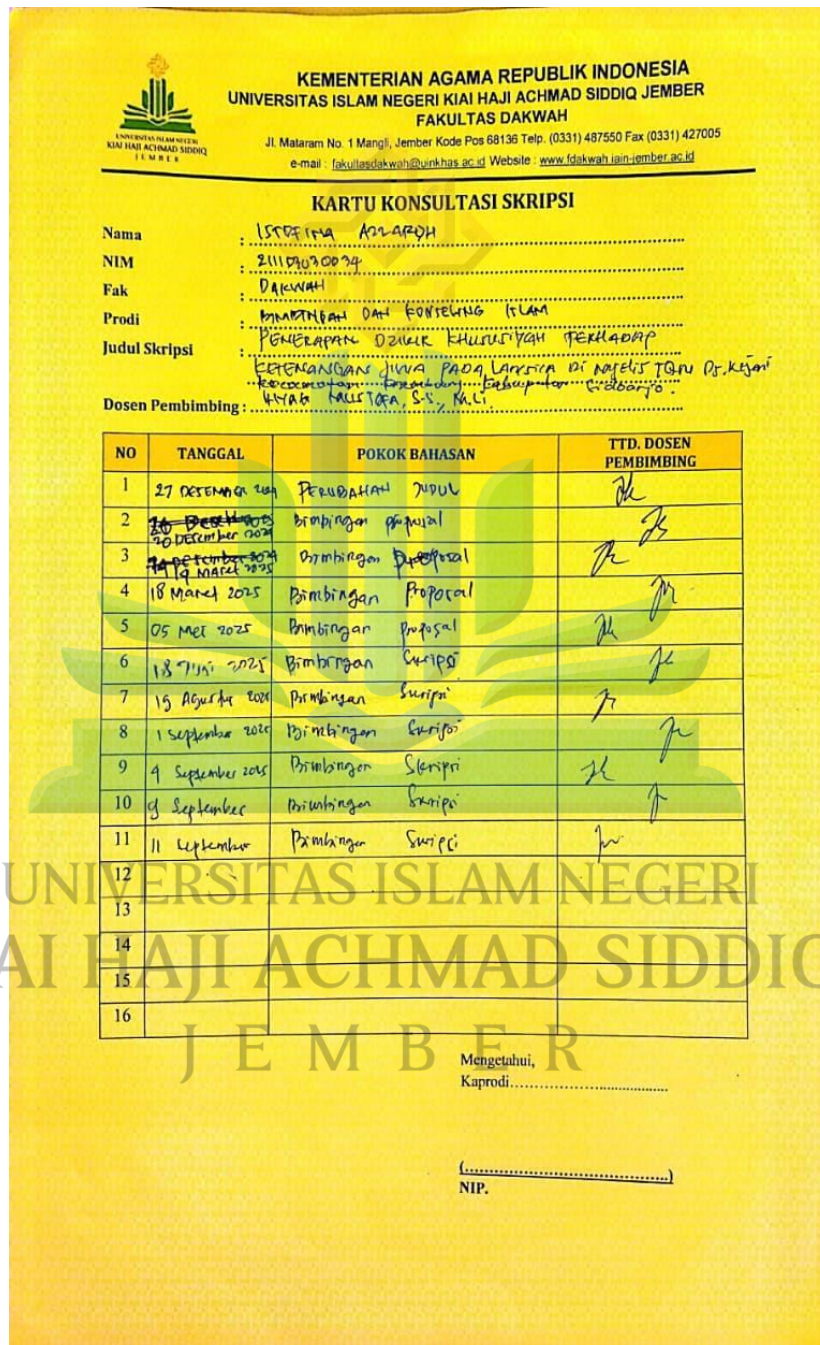 KEMENTERIAN AGAMA REPUBLIK INDONESIA
UNIVERSITAS ISLAM NEGERI KIAI HAJI ACHMAD SIDDIQ JEMBER
FAKULTAS DAKWAH
Jl. Mataram No. 1 Mangli, Jember Kode Pos 68136 Telp. (0331) 487550 Fax (0331) 427005
e-mail : fakultasdakwah@uinkhas.ac.id Website : www.fdakwah.iain-jember.ac.id
UNIVERSITAS ISLAM NEGERI
KIAI HAJI ACHMAD SIDDIQ
JEMBER
KARTU KONSULTASI SKRIPSI
Nama : ISTOFINA AZZAROH
NIM :
Fak : DAKWAH
Prodi : BIMBINGAN DAN KONSELING ISLAM
Judul Skripsi : PENERAPAN DZIKIR KHUSUSIYAH TERHADAP
KETENANGAN JIWA PADA LANSIA DI MAJELIS TQN Ds. Kejani
Kabupaten Sidoarjo.
Dosen Pembimbing : MUSTOFA, S.S., M.Li.
NO TANGGAL POKOK BAHASAN TTD. DOSEN PEMBIMBING
1 27 DESEMBER PERUBAHAN JUDUL
2 20 DESEMBER 2024 Bimbingan proposal
3 19 MARET 2025 Bimbingan Proposal
4 18 Maret 2025 Bimbingan Proposal
5 05 Mei 2025 Bimbingan proposal
6 18 Juni 2025 Bimbingan Skripsi
7 Agustus Bimbingan Skripsi
8 1 September 2025 Bimbingan Skripsi
9 4 September 2025 Bimbingan Skripsi
10 9 September Bimbingan Skripsi
11 11 September Bimbingan Skripsi
12
13
14
15
16
UNIVERSITAS ISLAM NEGERI
AI HAJI ACHMAD SIDDIQ
JEMBER
Mengetahui,
Kaprodi......................................
(......................................)
NIP.